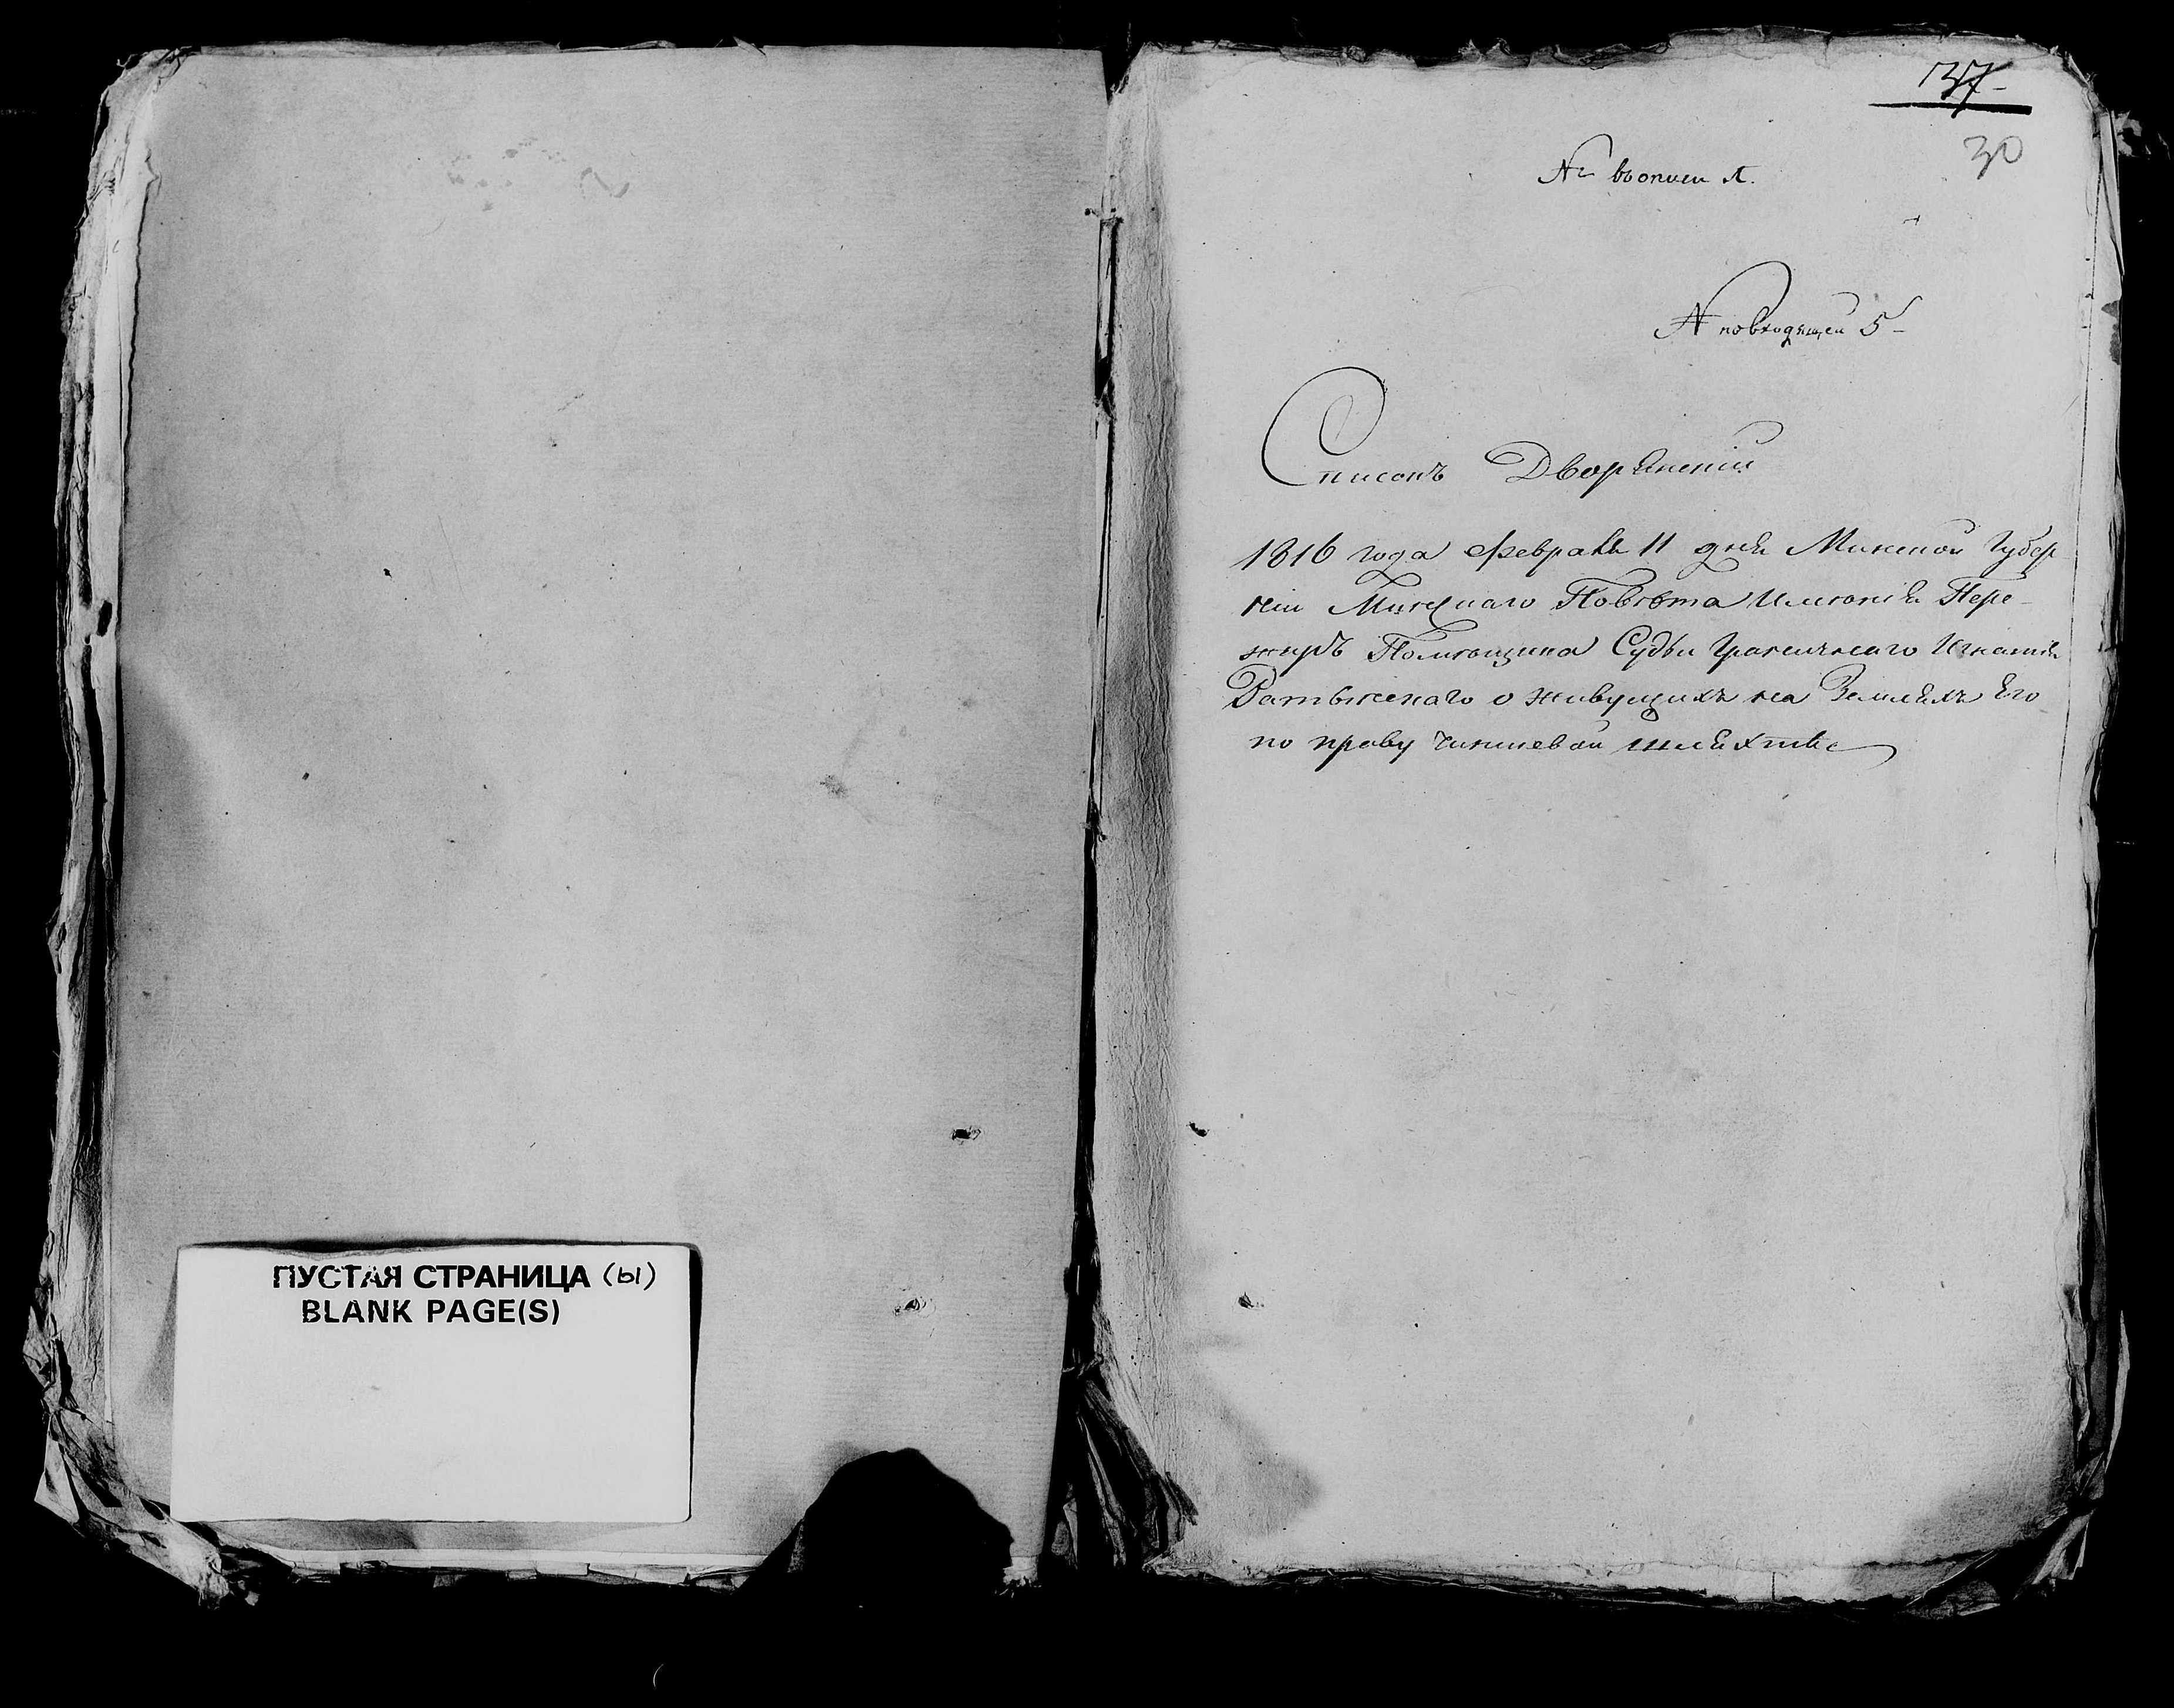 ПУСТАЯ СТРАНИЦА (ы)
BLANK PAGE(S)
37
30
№ въ описи
№ повходящей 5
Списокъ Дворянскій
1816 года февраля 11 дня Минской Губер
ніи Минскаго Повѣта Имѣнія Пере-
жиръ Помѣщика Судьи Граничнаго Игнатія
Ратынскаго о живущихъ на Земляхъ Его
по праву чиншевой шляхтѣ